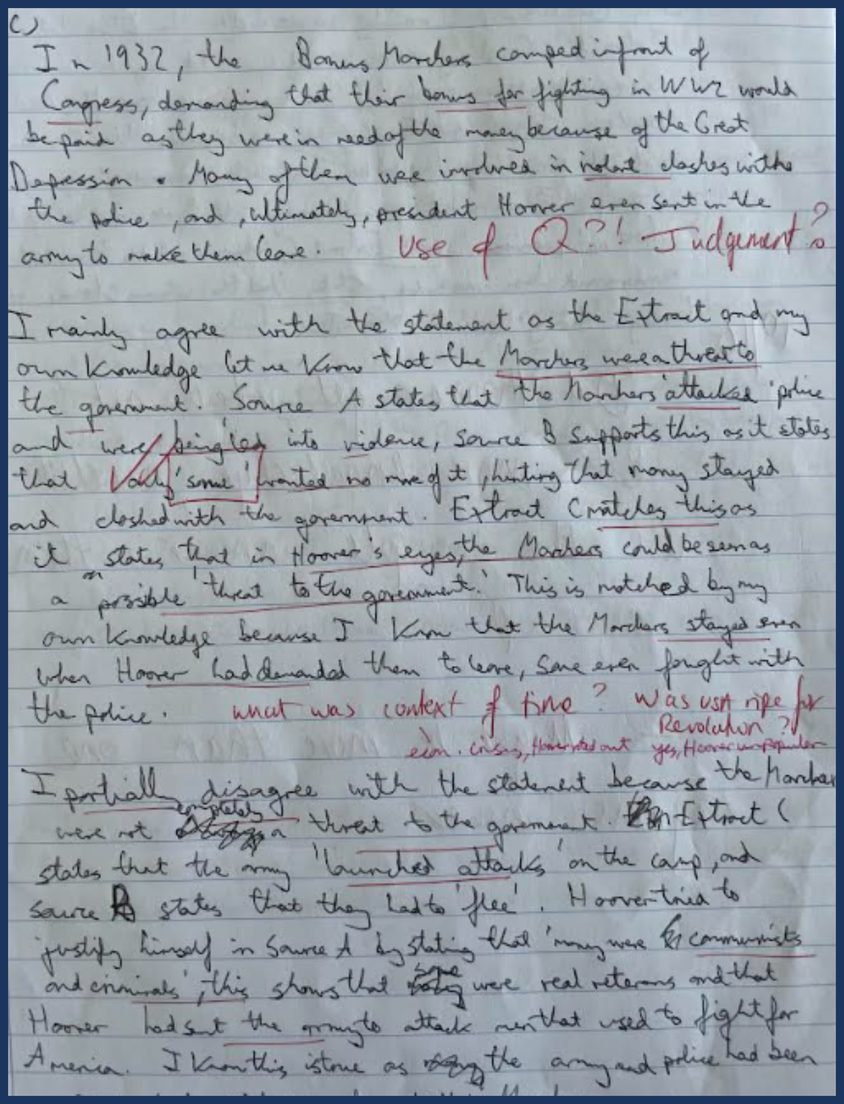 c)
In 1932, the Bonus Marchers camped infront of
Congress, demanding that their bonus for fighting in WW2 would
be paid as they were in need of the money because of the Great
Depression. Many of them were involved in violent clashes with
the police, and, ultimately, president Hoover even sent in the
army to make them leave. Use of Q?! Judgement?
I mainly agree with the statement as the Extract and my
own knowledge let me know that the Marchers were a threat to
the government. Source A states that the Marchers 'attacked' police
and were being led into violence, Source B supports this as it states
that only 'some' wanted no more of it, hinting that many stayed
and clashed with the government. Extract C matches this as
it states that in Hoover's eyes, the Marchers could be seen as
a possible 'threat to the government.' This is matched by my
own knowledge because I know that the Marchers stayed even
when Hoover had demanded them to leave, some even fought with
the police. What was context of time? Was USA ripe for
Revolution?
econ. crisis, Hoover voted out yes, Hoover unpopular
I partially disagree with the statement because the Marchers
were not completely a threat to the government. Extract C
states that the army 'launched attacks' on the camp, and
source B states that they had to 'flee'. Hoover tried to
justify himself in Source A by stating that 'many were communists
and criminals', this shows that some were real veterans and that
Hoover had sent the army to attack men that used to fight for
America. I know this is true as the army and police had been